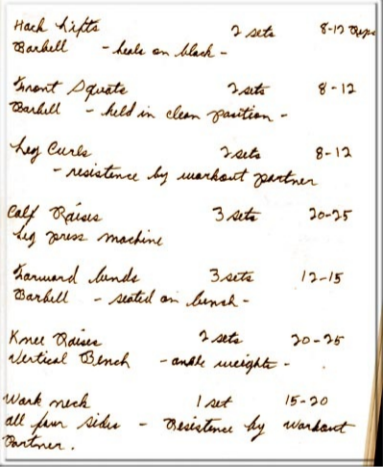 Hack Lifts 2 sets 8-12 Reps
Barbell - heels on block -
Front Squats 2 sets 8-12
Barbell - held in clean position -
Leg Curls 2 sets 8-12
- resistence by workout partner
Calf Raises 3 sets 20-25
Leg press machine
Forward bends 3 sets 12-15
Barbell - seated on bench -
Knee Raises 2 sets 20-25
Vertical Bench - ankle weights -
Work neck 1 set 15-20
all four sides - Resistence by workout
Partner.